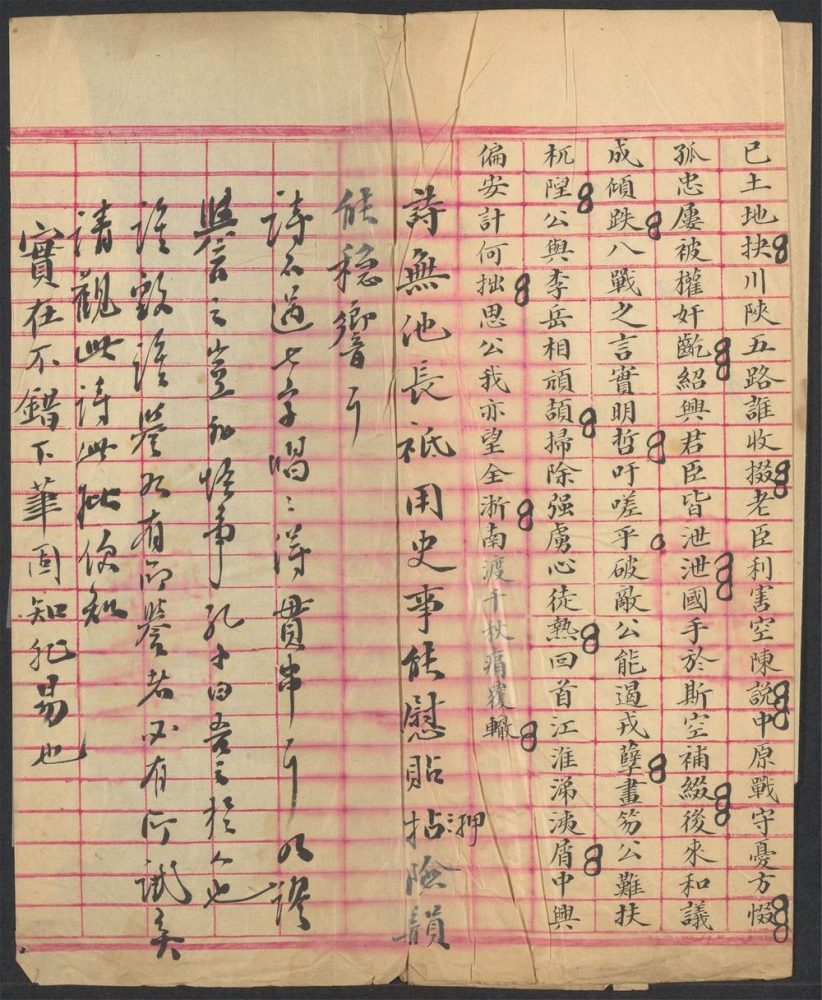 已土地抉川陝五路誰收掇老臣利害空陳說中原戰守憂方惙
孤忠屢被權奸齕紹興君臣皆泄泄國手於斯空補綴後來和議
成傾跌八戰之言實明哲吁嗟乎破敵公能遏戎孽畫笏公難扶
杌隉公與李岳相頑頡掃除强虜心徒熱回首江淮涕洟屑中興
偏安計何拙思公我亦望全浙南渡千秋痛覆轍
詩無他長祗用史事能慰貼拈押險韻
能穩響耳
詩不過七字唱之得貫串耳
譽言之豈非怪事孔子曰吾之於人也
誰毀誰譽如有所譽者必有所試矣
請觀此詩此批便知
實在不錯下筆固知非易也